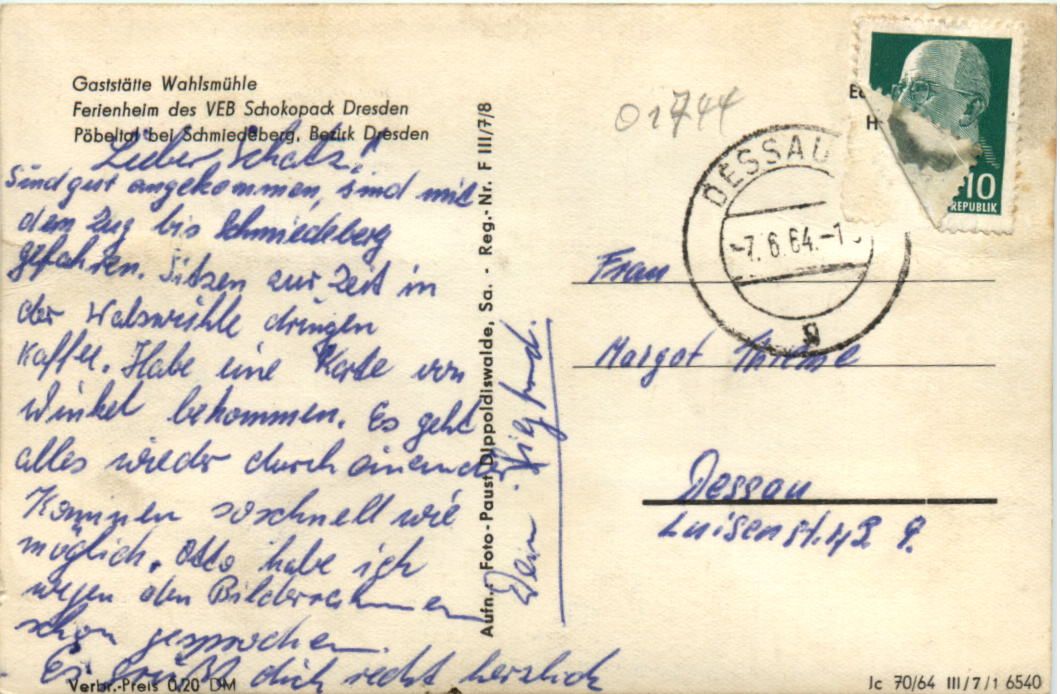 Gaststätte Wahlsmühle
Ferienheim des VEB Schokopack Dresden
Pöbeltal bei Schmiedeberg, Bezirk Dresden
Lieber Schatz!
Sind gut angekommen, sind mit
dem Zug bis Schmiedeberg
gefahren. Sitzen zur Zeit in
der Walsmühle dringen
Kaffee. Habe eine Karte von
Winkel bekommen. Es geht
alles wieder durch einander
Kommen so schnell wie
möglich. Otto habe ich
wegen den Bilderrahmen
schon gesprochen.
Es grüßt dich recht herzlich
Dein Siegfried.
Verbr.-Preis 0,20 DM
Aufn.: Foto-Paust Dippoldiswalde, Sa. - Reg.-Nr. F III/7/8
01744
DESSAU
-7.6.64.-1
10
REPUBLIK
Frau
Margot
Dessau
Luisenst. 42
Jc 70/64 III/7/1 6540